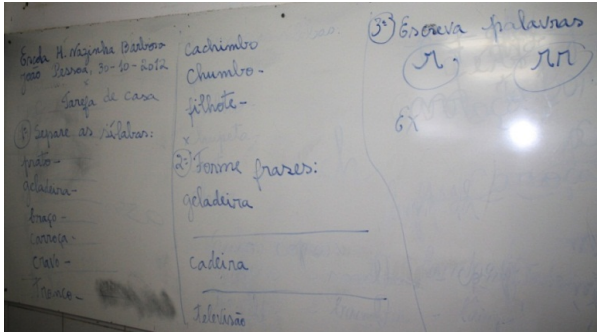 Escola M. Nazinha Barbosa
João Pessoa, 30-10-2012
Tarefa de casa
1º Separe as sílabas:
prato-
geladeira-
braço-
carroça-
cravo-
Tronco-
Cachimbo
Chumbo-
filhote-
2º Forme frases:
geladeira
Cadeira
Televisão
3º Escreva palavras
r. rr
Ex